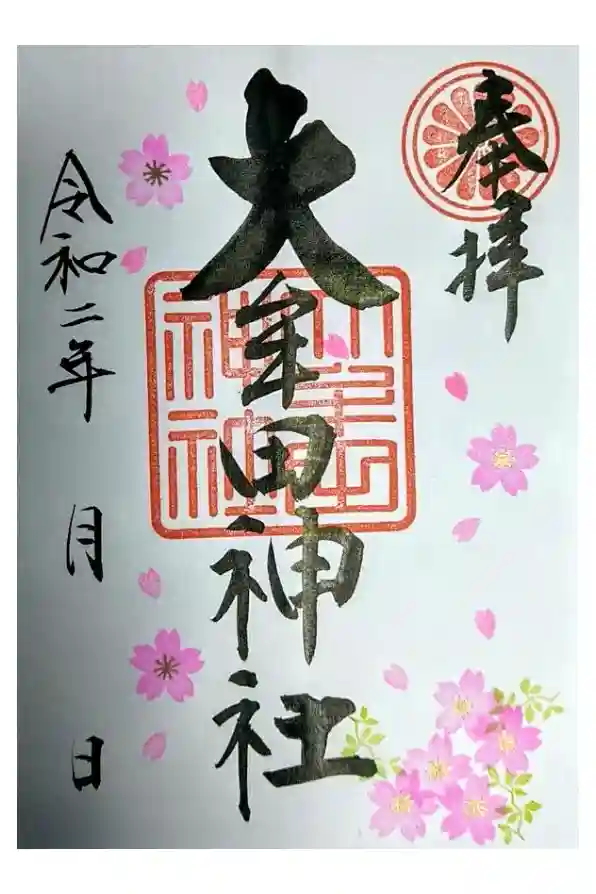 奉拝
大牟田神社
令和二年　月　日